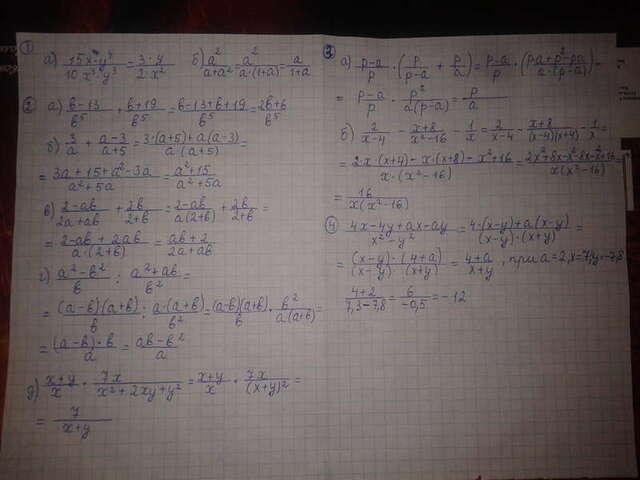 1
а) 15x⁴y⁴/10x³·y³ = 3·y/2·x² б) a²/a+a² = a²/a·(1+a) = a/1+a
2 а) b-13/b⁵ + b+19/b⁵ = b-13+b+19/b⁵ = 2b+6/b⁵
б) 3/a + a-3/a+5 = 3·(a+5)+a(a-3)/a(a+5) =
= 3a+15+a²-3a/a²+5a = a²+15/a²+5a
в) 2-ab/2a+ab + 2b/2+b = 2-ab/a(2+b) + 2b/2+b =
= 2-ab+2ab/a·(2+b) = ab+2/2a+ab
г) a²-b²/b : a²+ab/b² =
= (a-b)(a+b)/b : a·(a+b)/b² = (a-b)(a+b)/b · b²/a(a+b) =
= (a-b)·b/a = ab-b²/a
д) x+y/x · 7x/x²+2xy+y² = x+y/x · 7x/(x+y)² =
= 7/x+y
3 а) p-a/p · (p/p-a + p/a) = p-a/p · (pa+p²-pa/a·(p-a)) =
= p-a/p · p²/a(p-a) = p/a
б) 2/x-4 - x+8/x²-16 - 1/x = 2/x-4 - x+8/(x-4)(x+4) - 1/x =
= 2x·(x+4)-x·(x+8)-x²+16/x·(x²-16) = 2x²+8x-x²-8x-x²+16/x(x²-16) =
= 16/x(x²-16)
4 4x-4y+ax-ay/x²-y² = 4·(x-y)+a(x-y)/(x-y)·(x+y) =
= (x-y)·(4+a)/(x-y)·(x+y) = 4+a/x+y , при a=2, x=7,4 y=-7,8
4+2/7,3-7,8 = 6/-0,5 = -12